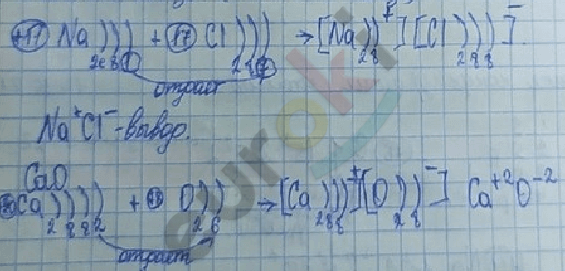 +11 Na))) + +17 Cl))) → [Na))⁺] [Cl)))⁻]
2e 8 1 2 8 7 2 8 2 8 8
отдает
Na⁺Cl⁻ - вывод.
CaO
Ca)))) + O)) → [Ca)))⁺] [O))⁻] Ca⁺²O⁻²
2 8 8 2 2 6 2 8 8 2 8
отдает
euroki